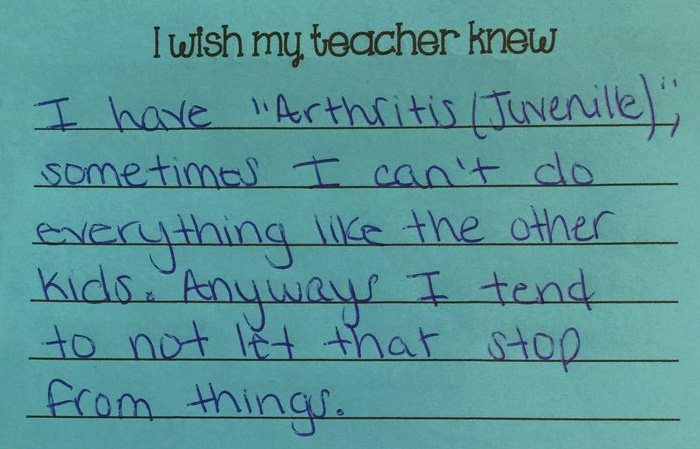 I wish my teacher knew
I have "Arthritis (Juvenille)",
sometimes I can't do
everything like the other
kids. Anyways I tend
to not let that stop
from things.